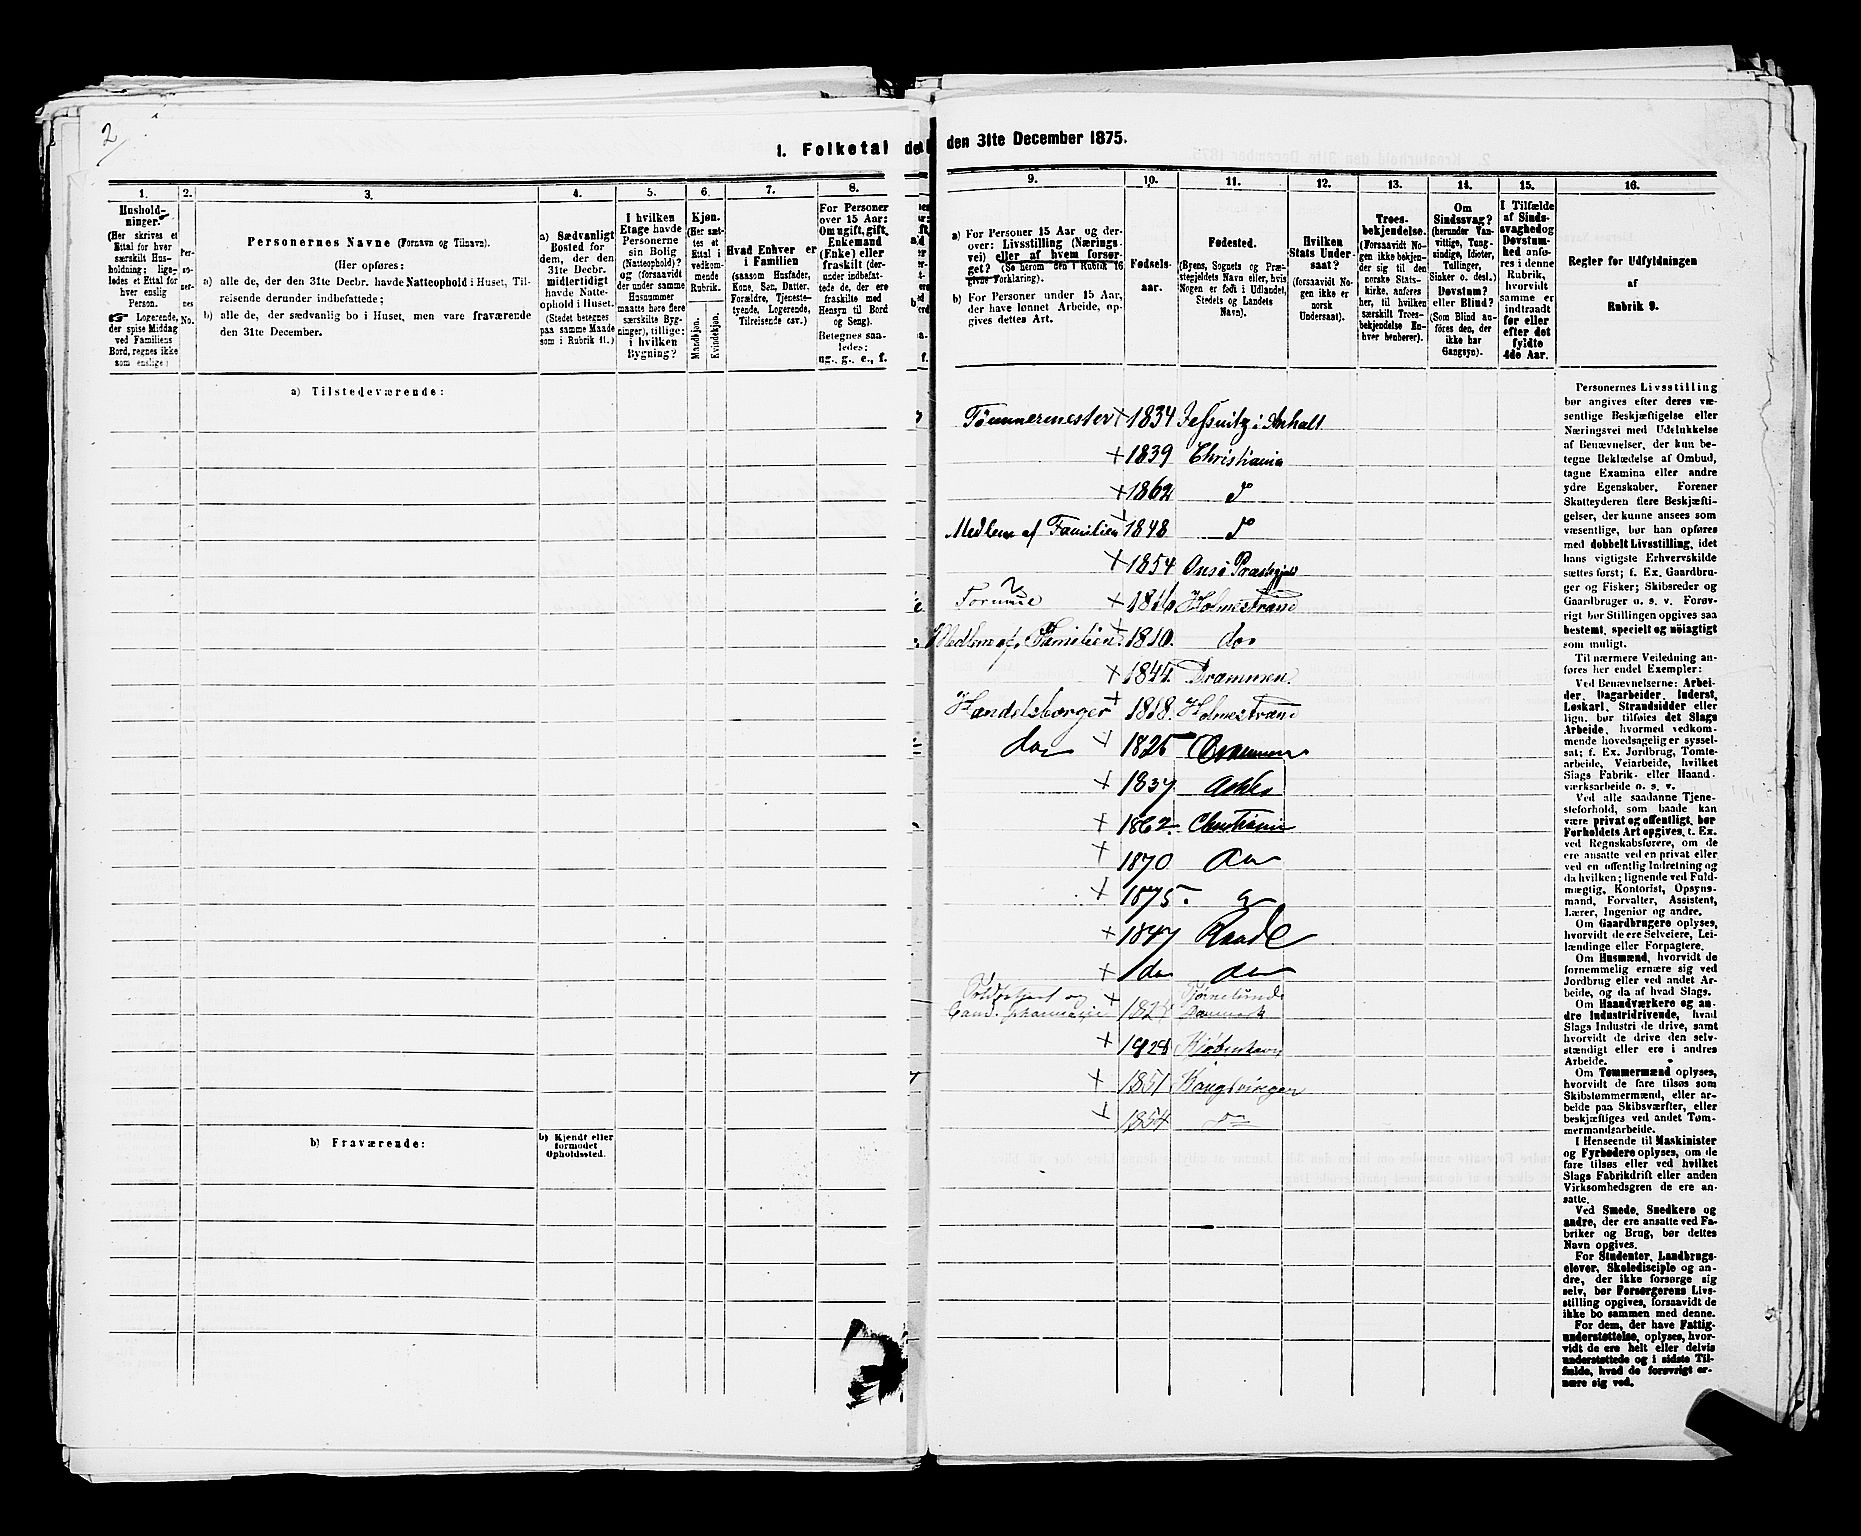 2
1. Folketal de
den 31te December 1875.
1.
2.
3.
4.
5.
6.
7.
8.
Hushold-
ninger.
(Her skrives et
Ettal for hver
særskilt Hus-
holdning; lige-
ledes et Ettal for
hver enslig
Person.
Logerende,
der spise Middag
ved Familiens
Bord, regnes ikke
som enslige.)
Per-
so-
ner-
nes
No.
Personernes Navne (Fornavn og Tilnavn).
(Her opføres:
a) alle de, der den 31te Decbr. havde Natteophold i Huset, Til-
reisende derunder indbefattede;
b) alle de, der sædvanlig bo i Huset, men vare fraværende
den 31te December.
a) Sædvanligt
Bosted for
dem, der den
31te Decbr.
midlertidigt
havde Natte-
ophold i Huset.
(Stedet betegnes
paa samme Maade
som i Rubrik 11.)
I hvilken
Etage havde
Personerne
sin Bolig
(Natteophold)?
og (forsaavidt
der under samme
Husnummer
maatte høre flere
særskilte Byg-
ninger), tillige:
i hvilken
Bygning?
Kjøn.
(Her sæt-
tes et
Ettal i
vedkom-
mende
Rubrik.
Mandkjøn.
Kvindekjøn.
Hvad Enhver er
i Familien
(saasom Husfader,
Kone, Søn, Datter,
Forældre, Tjeneste-
tyende, Logerende,
Tilreisende osv.)
For Personer
over 15 Aar:
Om ugift, gift,
Enkemand
(Enke) eller
fraskilt (der-
under indbefat-
tede de, der ere
fraskilte med
Hensyn til Bord
og Seng).
Betegnes saa-
ledes:
ug., g., e., f.
a) Tilstedeværende:
b) Fraværende:
b) Kjendt eller
formodet
Opholdssted.
9.
10.
11.
12.
13.
14.
15.
16.
a) For Personer 15 Aar og der-
over: Livsstilling (Nærings-
vei) eller af hvem forsør-
get? (Se herom den i Rubrik 16
givne Forklaring).
b) For Personer under 15 Aar,
der have lønnet Arbeide, op-
gives dettes Art.
Fødsels-
aar.
Fødested.
(Byens, Sognets og Præ-
stegjeldets Navn eller, hvis
Nogen er født i Udlandet,
Stedets og Landets
Navn).
Hvilken
Stats Under-
saat?
(forsaavidt No-
gen ikke er
norsk
Undersaat).
Troes-
bekjendelse.
(Forsaavidt No-
gen ikke bekjen-
der sig til den
norske Stats-
kirke, anføres
her, til hvilken
særskilt Troes-
bekjendelse En-
hver henhører).
Om
Sindssvag?
(herunder Van-
vittige, Tung-
sindige, Idioter,
Tullinger,
Sinker o. desl.)
Døvstum?
eller Blind?
(Som Blind an-
føres den, der
ikke har
Gangsyn).
I Tilfælde
af Sinds-
svaghed og
Døvstum-
hed anfø-
res i denne
Rubrik,
hvorvidt
samme er
indtraadt
før eller
efter det
fyldte
4de Aar.
Regler for Udfyldningen
af
Rubrik 9.
Tömmermester 1834 Jessnitz i Anhalt
1839 Christiania
1862
Medlem af Familien 1848
1854 Onsö Præstegjeld
1816 Holmestrand
Medlem af Familien 1810. do
1844. Drammen
Handelsborger 1818. Holmestrand
do 1825 Drammen
1837
1862. Christiania
1870 do
1875.
1847 Raade
do do
Cand. pharmacie Danmark
1828 Kjøbenhavn
1851 Kongsvinger
1854
Personernes Livsstilling
bør angives efter deres væ-
sentlige Beskjæftigelse eller
Næringsvei med Udelukkelse
af Benævnelser, der kun be-
tegne Beklædelse af Ombud,
tagne Examina eller andre
ydre Egenskaber. Forener
Skatteyderen flere Beskjæfti-
gelser, der kunne ansees som
væsentlige, bør han opføres
med dobbelt Livsstilling, idet
hans vigtigste Erhvervskilde
sættes først; f. Ex. Gaardbru-
ger og Fisker; Skibsreder og
Gaardbruger o. s. v. Forøv-
rigt bør Stillingen opgives saa
bestemt, specielt og nöiagtigt
som muligt.
Til nærmere Veiledning an-
føres her endel Exempler:
Ved Benævnelserne: Arbei-
der, Dagarbeider, Inderst,
Løskarl, Strandsidder eller
lign. bør tilføies det Slags
Arbeide, hvormed vedkom-
mende hovedsagelig er syssel-
sat; f. Ex. Jordbrug, Tomte-
arbeide, Veiarbeide, hvilket
Slags Fabrik- eller Haand-
værksarbeide o. s. v.
Ved alle saadanne Tjene-
steforhold, som baade kan
være privat og offentligt, bør
Forholdets Art opgives, t. Ex.
ved Regnskabsførere, om de
ere ansatte ved en privat eller
ved en offentlig Indretning og
da hvilken; lignende ved Fuld-
mægtig, Kontorist, Opsyns-
mand, Forvalter, Assistent,
Lærer, Ingeniør og andre.
Om Gaardbrugere oplyses,
hvorvidt de ere Selveiere, Lei-
lændinge eller Forpagtere.
Om Husmænd, hvorvidt de
fornemmelig ernære sig ved
Jordbrug eller ved andet Ar-
beide, og da af hvad Slags.
Om Haandværkere og an-
dre Industridrivende, hvad
Slags Industri de drive, samt
hvorvidt de drive den selv-
stændigt eller ere i andres
Arbeide.
Om Tømmermænd oplyses,
hvorvidt de fare tilsøs som
Skibstømmermænd, eller ar-
beide paa Skibsværfter, eller
beskjæftiges ved andet Tøm-
mermandsarbeide.
I Henseende til Maskinister
og Fyrbødere oplyses, om de
fare tilsøs eller ved hvilket
Slags Fabrikdrift eller anden
Virksomhedsgren de ere an-
satte.
Ved Smede, Snedkere og
andre, der ere ansatte ved Fa-
briker og Brug, bør dettes
Navn opgives.
For Studenter, Landbrugs-
elever, Skoledisciple og an-
dre, der ikke forsørge sig
selv, bør Forsørgerens Livs-
stilling opgives, forsaavidt de
ikke bo sammen med denne.
For dem, der have Fattig-
understøttelse, oplyses, hvor-
vidt de ere helt eller delvis
understøttede og i sidste Til-
fælde, hvad de forøvrigt er-
nære sig ved.